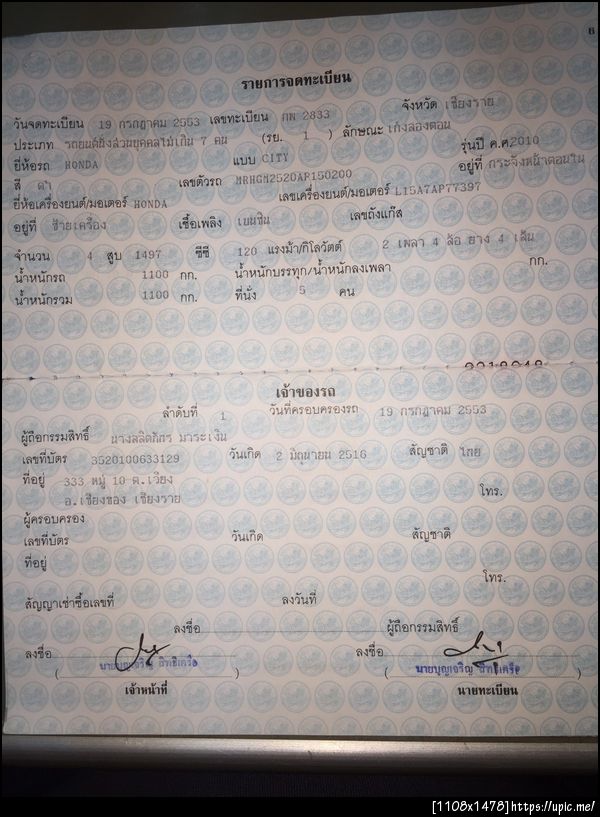 รายการจดทะเบียน
วันจดทะเบียน 19 กรกฎาคม 2553 เลขทะเบียน กพ 2833 จังหวัด เชียงราย
ประเภท รถยนต์นั่งส่วนบุคคลไม่เกิน 7 คน (รย. 1 ) ลักษณะ เก๋งสองตอน
ยี่ห้อรถ HONDA แบบ CITY รุ่นปี ค.ศ.2010
สี ดำ เลขตัวรถ MRHGM2520AP150200 อยู่ที่ กระจังหน้าตอนใน
ยี่ห้อเครื่องยนต์/มอเตอร์ HONDA เลขเครื่องยนต์/มอเตอร์ L15A7AP77397
อยู่ที่ ซ้ายเครื่อง เชื้อเพลิง เบนซิน เลขถังแก๊ส
จำนวน 4 สูบ 1497 ซีซี 120 แรงม้า/กิโลวัตต์ 2 เพลา 4 ล้อ ยาง 4 เส้น
น้ำหนักรถ 1100 กก. น้ำหนักบรรทุก/น้ำหนักลงเพลา กก.
น้ำหนักรวม 1100 กก. ที่นั่ง 5 คน
เจ้าของรถ
ลำดับที่ 1 วันที่ครอบครองรถ 19 กรกฎาคม 2553
ผู้ถือกรรมสิทธิ์ มาระเงิน
เลขที่บัตร 3520100633129 วันเกิด 2 มิถุนายน 2516 สัญชาติ ไทย
ที่อยู่ 333 หมู่ 10 ต.เวียง
อ.เชียงของ เชียงราย โทร.
ผู้ครอบครอง
เลขที่บัตร วันเกิด สัญชาติ
ที่อยู่
โทร.
สัญญาเช่าซื้อเลขที่ ลงวันที่
ลงชื่อ ผู้ถือกรรมสิทธิ์
ลงชื่อ ลงชื่อ
( นายบุญเจริญ สิทธิเครือ ) ( นายบุญเจริญ สิทธิเครือ )
เจ้าหน้าที่ นายทะเบียน
[1108x1478]https://upic.me/